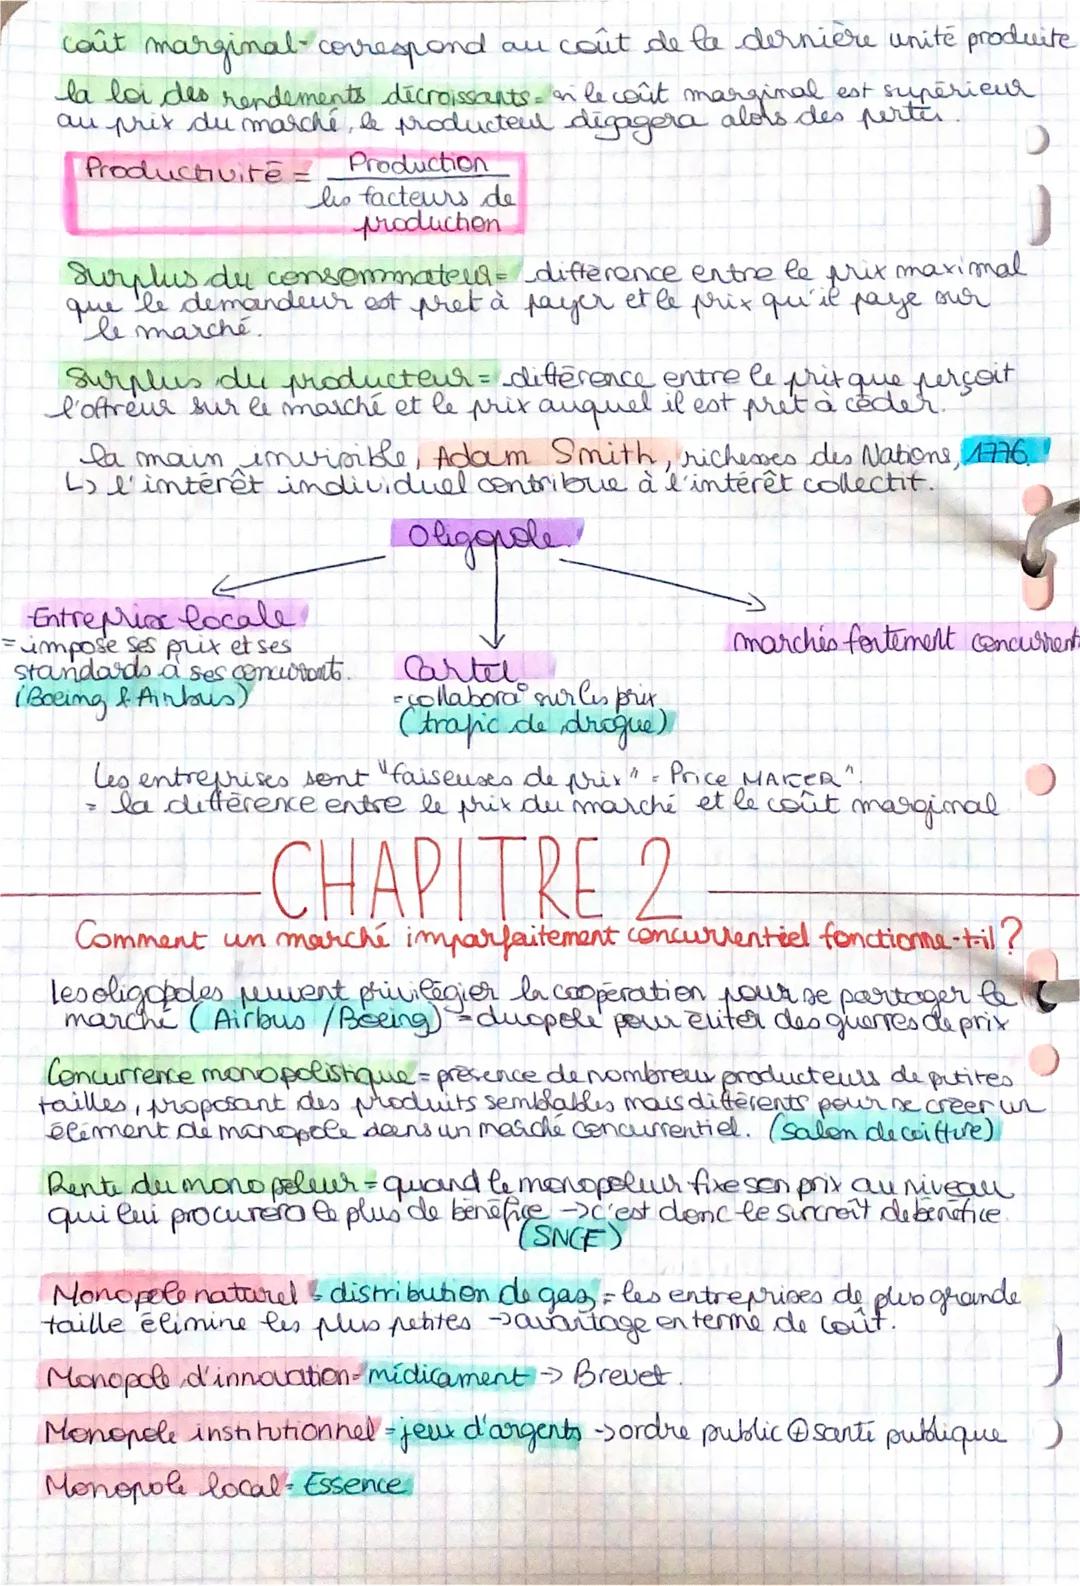 coût marginal = correspond au coût de la dernière unité produite
la loi des rendements décroissants = si le coût marginal est supérieur
au prix du marché, le producteur dégagera alors des pertes.
Productivité = Production
les facteurs de
production
Surplus du consommateur = différence entre le prix maximal
que le demandeur est pret à payer et le prix qu'il paye sur
le marché.
Surplus du producteur = différence entre le prix que perçoit
l'offreur sur le marché et le prix auquel il est pret à céder.
la main invisible, Adam Smith, richesses des Nations, 1776.
↳ l'intérêt individuel contribue à l'intérêt collectif.
Oligopole
Entreprise locale
= impose ses prix et ses
standards à ses concurrents.
(Boeing & Airbus)
Cartel
= collabora° sur les prix
(trafic de drogue)
marchés fortement concurrent
Les entreprises sont "faiseuses de prix" = Price MAKER".
= la différence entre le prix du marché et le coût marginal
CHAPITRE 2
Comment un marché imparfaitement concurrentiel fonctionne-t-il ?
Les oligopoles peuvent privilégier la coopération pour se partager le
marché (Airbus / Boeing) = duopole pour éviter des guerres de prix
Concurrence monopolistique = présence de nombreux producteurs de petites
tailles, proposant des produits semblables mais différents pour se créer un
élément de monopole dans un marché concurrentiel. (salon de coiffure)
Rente du monopoleur = quand le monopoleur fixe son prix au niveau
qui lui procurera le plus de bénéfice → c'est donc le surcroît de bénéfice.
(SNCF)
Monopole naturel = distribution de gaz = les entreprises de plus grande
taille élimine les plus petites → avantage en terme de coût.
Monopole d'innovation = médicament → Brevet.
Monopole institutionnel = jeux d'argents → ordre public ⊕ santé publique
Monopole local = Essence